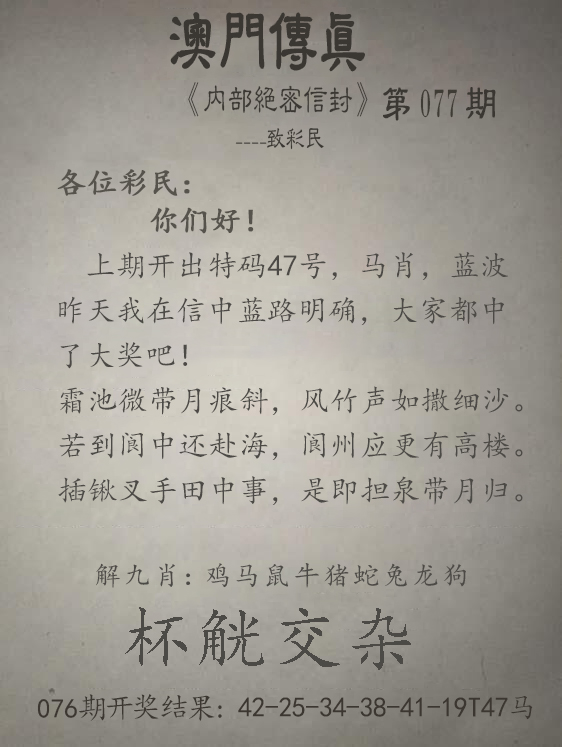 澳門傳眞
《内部絕密信封》第077期
----致彩民
各位彩民：
你们好！
上期开出特码47号，马肖，蓝波
昨天我在信中蓝路明确，大家都中
了大奖吧！
霜池微带月痕斜，风竹声如撒细沙。
若到阆中还赴海，阆州应更有高楼。
插锹叉手田中事，是即担泉带月归。
解九肖：鸡马鼠牛猪蛇兔龙狗
杯觥交杂
076期开奖结果：42-25-34-38-41-19T47马